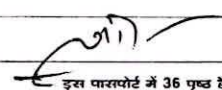 इस पासपोर्ट में 36 पृष्ठ हैं